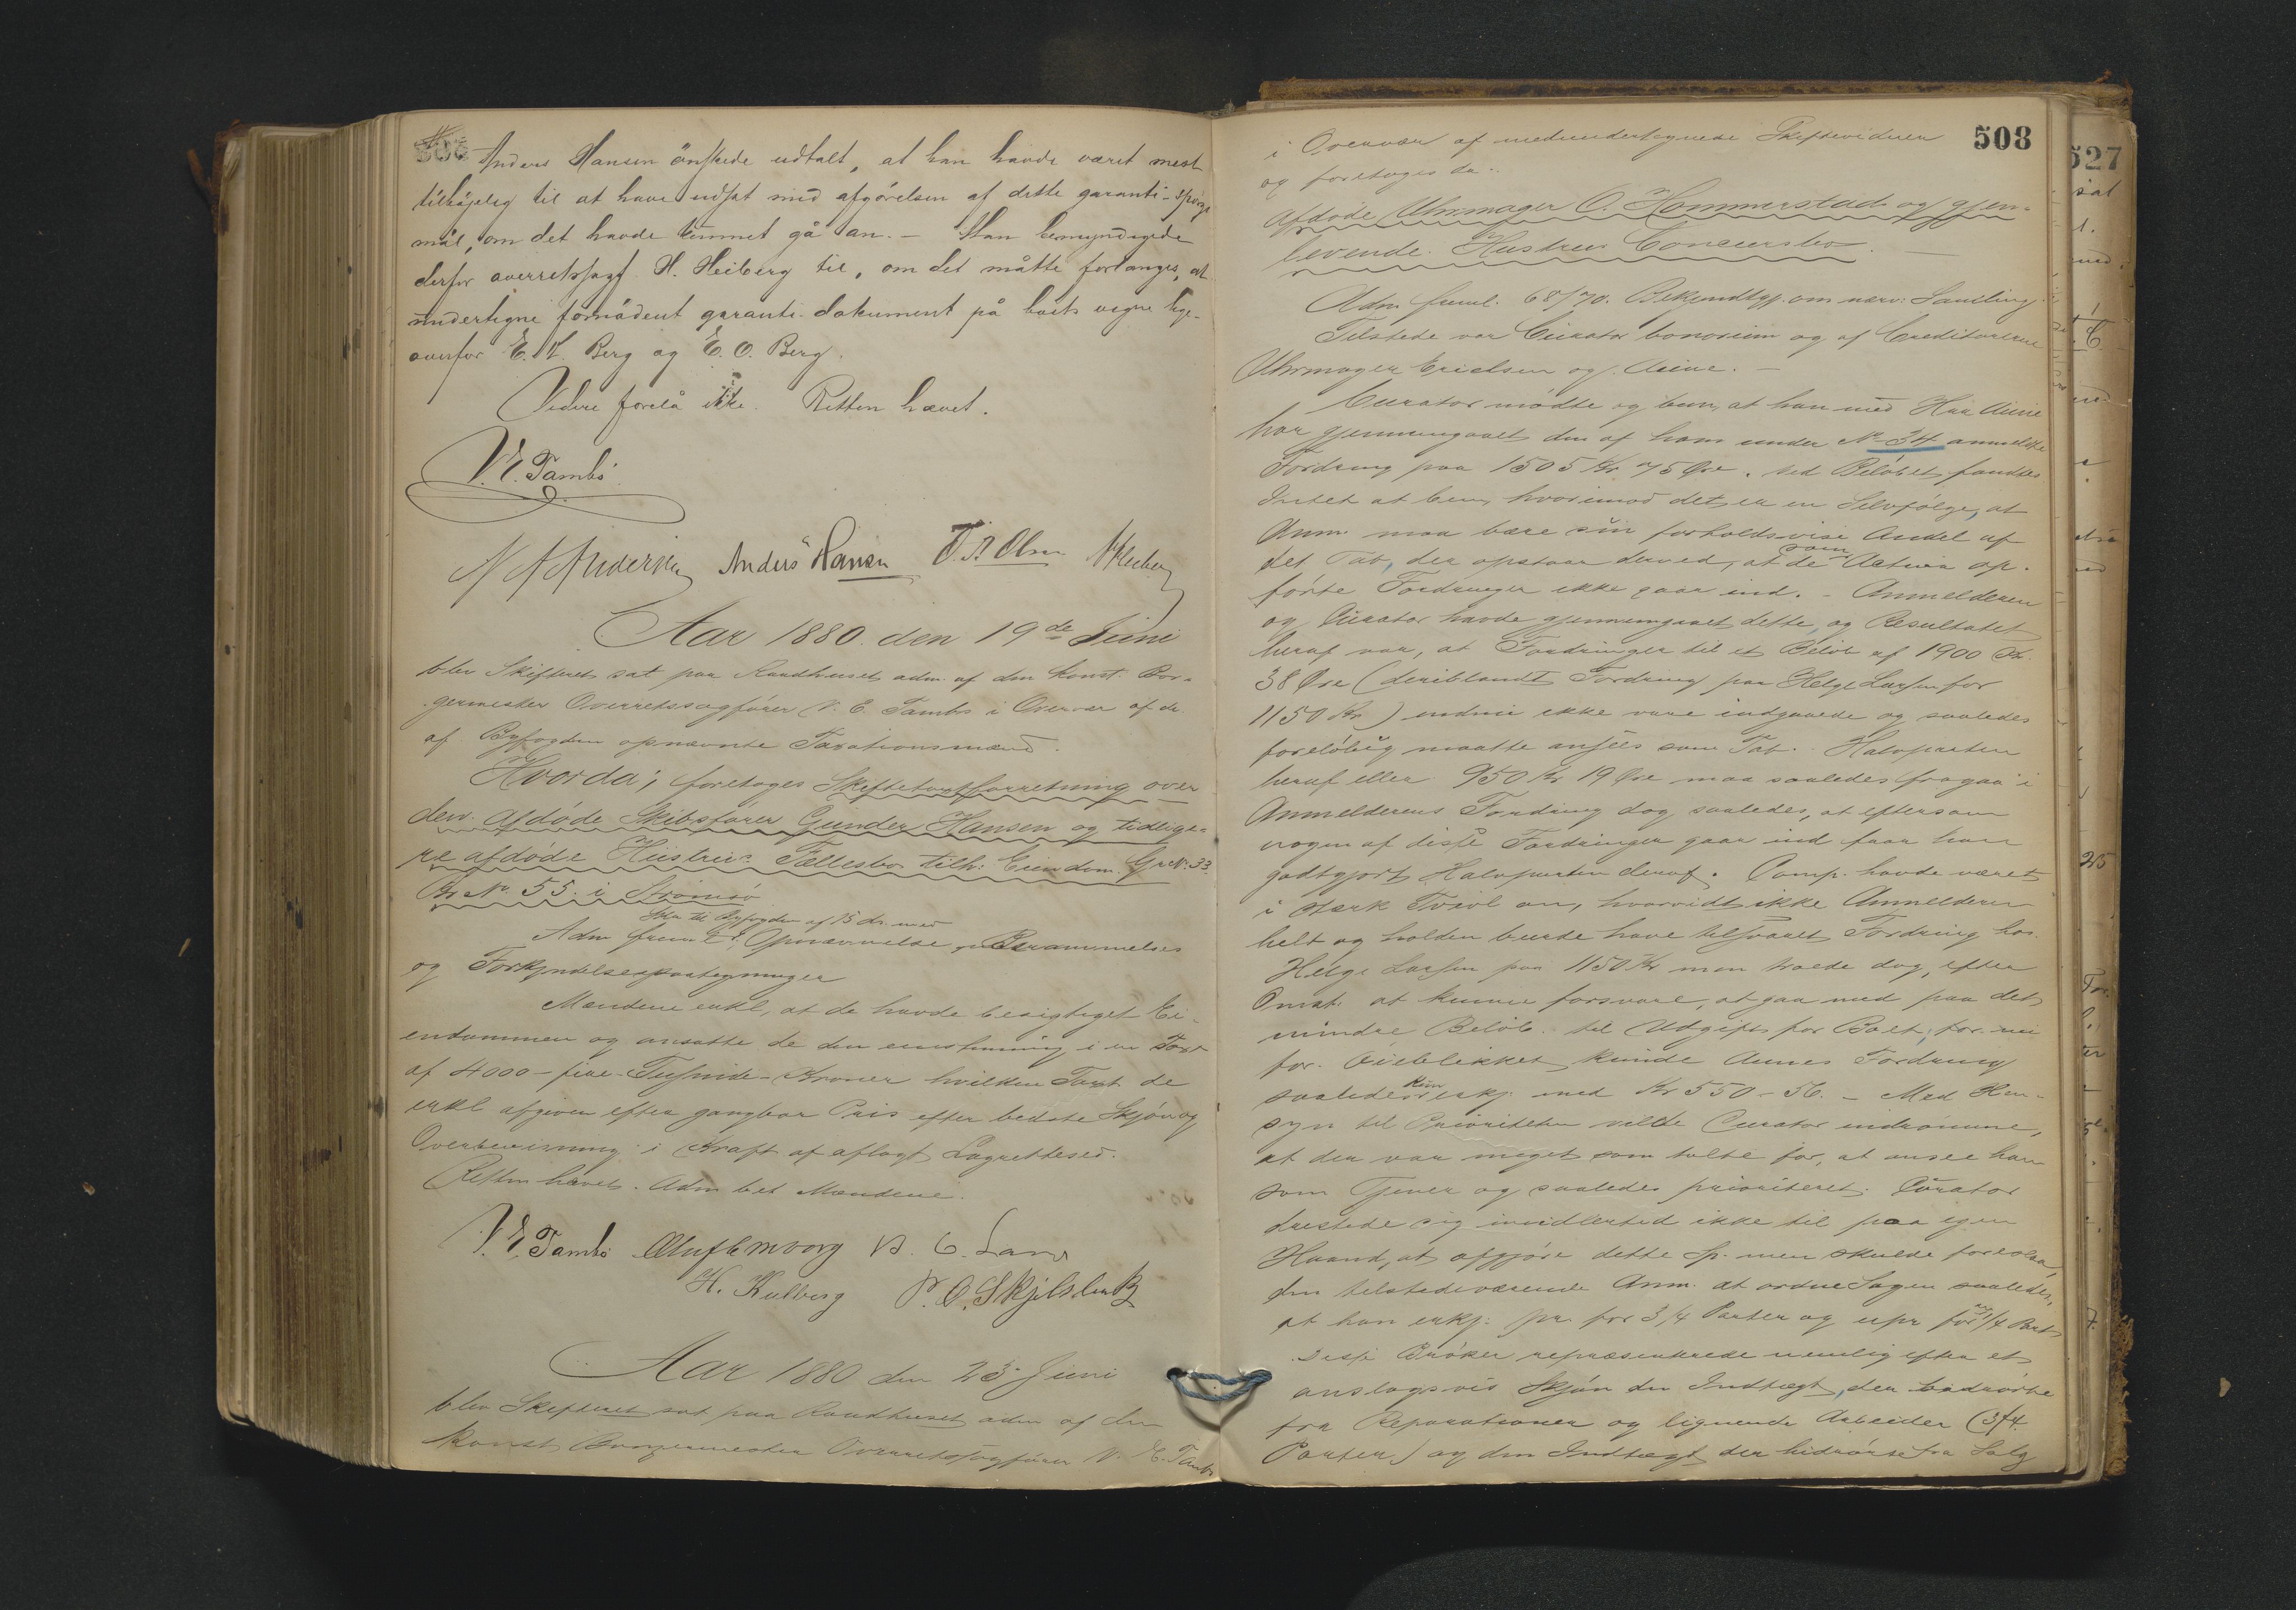 Anders Hansen önskede udtalt, at han havde været mest
tilböjelig til at have udsat med afgörelsen af dette garanti-spörgs
mål, om det havde kunnet gå an. – Man bemyndigede
derfor overretssagf. H. Heiberg til, om det måtte forlanges, at
undertegne fornödent garanti-dokument på boets vegne lige-
overfor E. K. Berg og E. O. Berg.
Videre forelå ikke. Retten hævet.
V. E. Tambs
N A Andersen Anders Hansen
Aar 1880 den 19de Juni
blev Skifteret sat paa Raadhuset adm. af den konst. Bor-
germester Overretssagfører V. E. Tambs i Overvær af de
af Byfogden opnævnte Taxationsmænd.
Hvorda; foretoges Skiftetaxtforretning over
den afdøde Skibsfører Gunder Hansen og tidlige-
re afdøde Hustrus Fællesbo tilh. Eiendom Gr No. 33
Br No. 55 i Strømsø
Skr. til Byfogden af 15 ds. med
Adm freml. Opnævnelse, Berammelses
og Forkyndelsespaategninger
Mændene erkl., at de havde besigtiget Ei-
endommen og ansatte de den enstemmig i en Taxt
af 4000 – fire – Tusinde – Kroner hvilken Taxt de
erkl afgiven efter gangbar Pris efter bedste Skjøn og
Overbevisning i Kraft af aflagt Lagrettesed.
Retten hævet. Adm bet Mændene.
V. E. Tambs
H. Kulberg
Aar 1880 den 23 Juni
blev Skifteret sat paa Raadhuset adm af den
konst Borgermester Overretssagfører V. E. Tambs
508
i Overvær af medundertegnede Skiftevidner
og foretoges da:
Afdøde Uhrmager O. Hammerstads og gjen-
levende Hustrus Concursbo. —
Adm freml. 68/70. Bekjendtgj. om nærv. Samling
Tilstede var Curator bonorum og af Creditorerne
Uhrmager Erichsen og Aune. –
Curator mødte og bem. at han med Hr Aune
har gjennemgaaet den af ham under No 34 anmeldte
Fordring paa 1505 Kr. 75 Øre. Ved Beløbet fandtes
Intet at bem, hvorimod det er en Selvfølge, at
Anm. maa bære sin forholdsvise Andel af
det Tab, der opstaar derved, at de som Activa op-
førte Fordringer ikke gaar ind. – Anmelderen
og Curator havde gjennemgaaet dette, og Resultatet
heraf var, at Fordringer til et Beløb af 1900 Kr.
38 Øre (deriblandt Fordring paa Helge Larsen for
1150 Kr) endnu ikke vare indgaaede og saaledes
foreløbig maatte ansees som Tab. Halvparten
heraf eller 950 Kr 19 Øre maa saaledes fragaa i
Anmelderens Fordring dog saaledes, at eftersom
nogen af disse Fordringer gaar ind faar han
godtgjort Halvparten deraf. Comp. havde været
i stærk Tvivl om, hvorvidt ikke Anmelderen
helt og holden burde have tilsvaret Fordring hos
Helge Larsen paa 1150 Kr men troede dog, efter
Omst. at kunne forsvare, at gaa med paa det
mindre Beløb til Udgift for Boet, for
for Øieblikket kunde Aunes Fordring
saaledes kun erkj. med Kr 550-56. – Med Hen-
syn til Prioriteten vilde Curator indrømme,
at der var meget som talte for, at ansee ham
som Tjener og saaledes prioriteret. Curator
drestede sig imidlertid ikke til paa egen
Haand, at afgjøre dette Sp. men skulde foreslaa
den tilstedeværende Anm. at ordne Sagen saaledes,
at han erkj. pr. for 3/4 Parter og upr for 1/4 Part
Disse Brøker repræsenterede nemlig efter et
anslagsvis Skjøn den Indtægt, der hidrørte
fra Reparationer og lignende Arbeider (3/4
Parter) og den Indtægt der hidrørte fra Salg
527